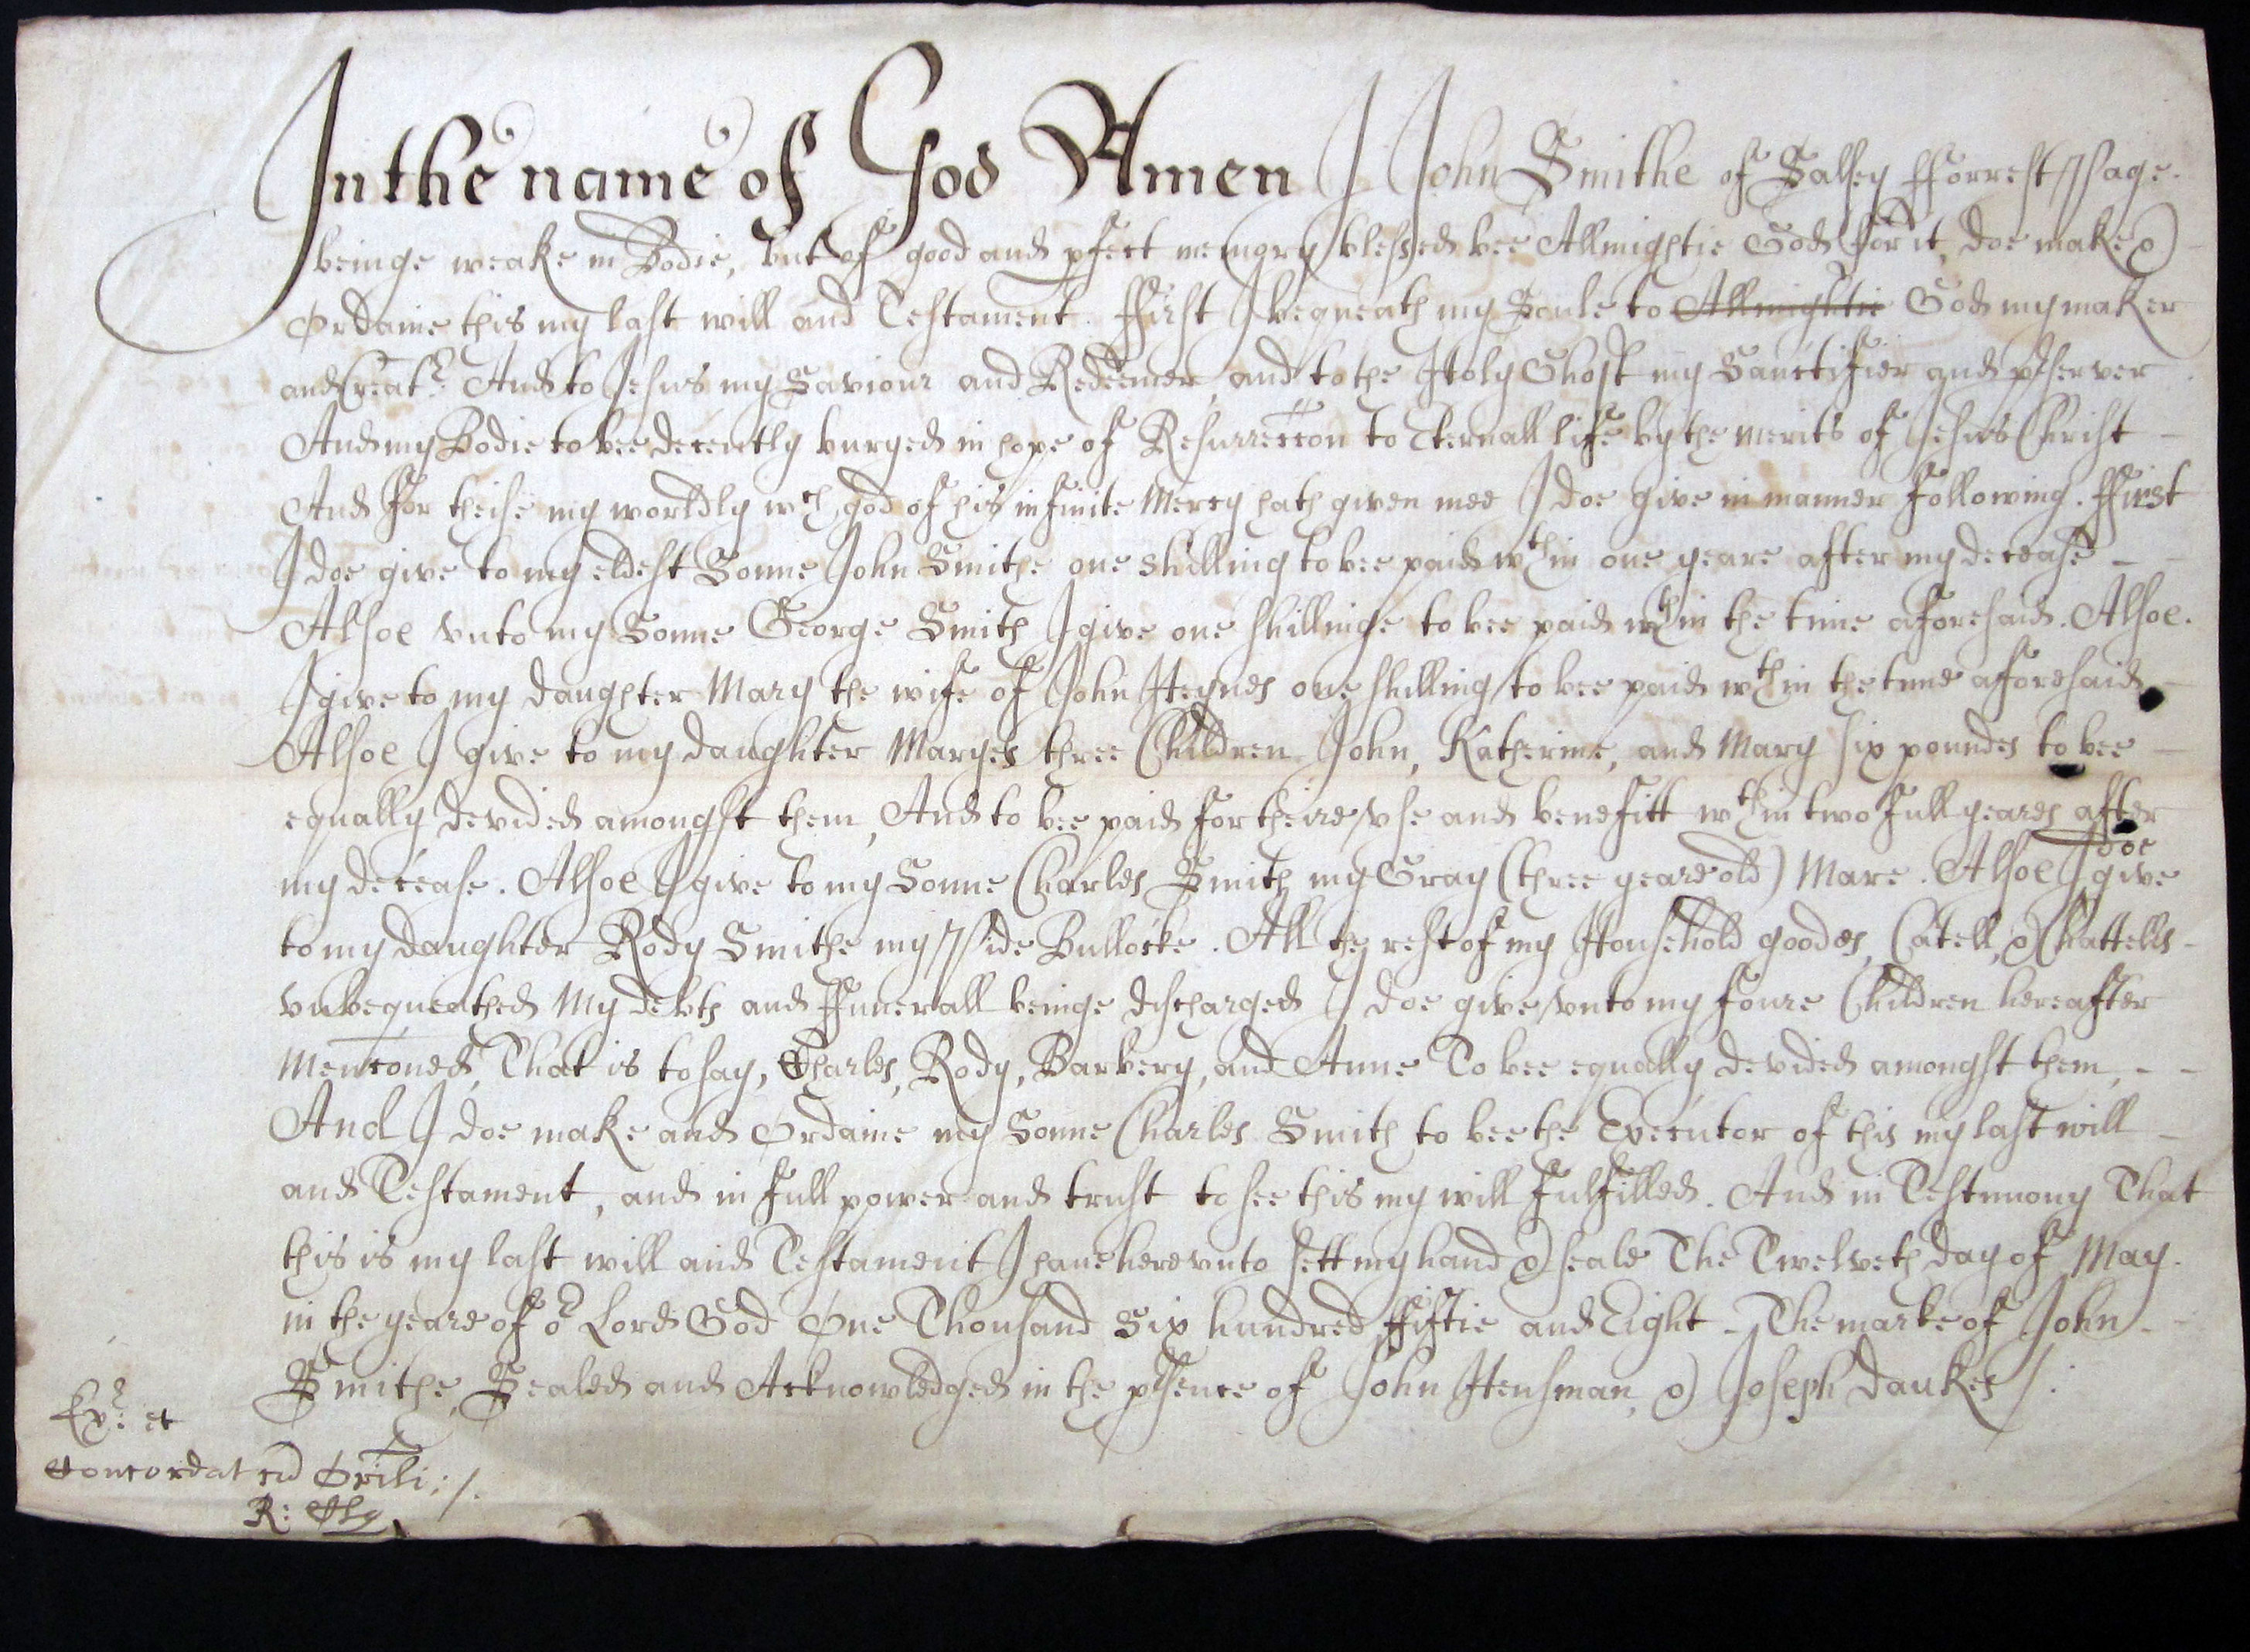 In the name of God Amen I John Smithe of Salsey fforrest //sage.
beinge weake in Bodie, but of good and pfect memory blessed bee Allmightie God for it, doe make &
Ordaine this my last will and Testament. ffirst I bequeath my Soule to Allmightie God my maker
and Creatr. And to Jesus my Saviour and Redeemer, and to the Holy Ghost my Sanctifier and pserver
And my Bodie to bee decently buryed in hope of Resurreccon to Eternall life by the merits of Jesus Christ -
And for theise my worldly wch god of his infinite Mercy hath given mee I doe give in manner following. ffirst
I doe give to my eldest Sonne John Smithe one shilling to bee paid wthin one yeare after my decease - -
Alsoe vnto my Sonne George Smith I give one shillinge to bee paid wthin the time aforesaid. Alsoe.
I give to my daughter Mary the wife of John Heynes one shilling to bee paid wthin the time afforesaid -
Alsoe I give to my daughter Maryes three Children John, Katherine, and Mary six poundes to bee -
equally devided amongst them, And to bee paid for theire vse and benefitt wthin two full yeares after
my decease. Alsoe I give to my Sonne Charles Smith my Gray (three yeare old) Mare. Alsoe I doe give
to my daughter Rody Smithe my Bullocke. All the rest of my Household goodes, Catell, & Chattells -
vnbequeathed My debts and ffunerall beinge discharged I doe give vnto my foure Children hereafter
Menconed, That is to say, Charles, Rody, Barbery, and Anne To bee equally devided amongst them, - -
And I doe make and Ordaine my Sonne Charles Smith to bee the Executor of this my last will -
and Testament, and in full power and trust to see this my will fulfilled. And in Testimony That
this is my last will and Testament I haue herevnto sett my hand & seale The Twelveth day of May.
in the yeare of or Lord God One Thousand Six hundred ffiftie and Eight - The marke of John - -
Smithe, Sealed and Acknowledged in the psence of John Hensman, & Joseph Daukes /.
Exr: et
Concordat cu Orili: /.
R: